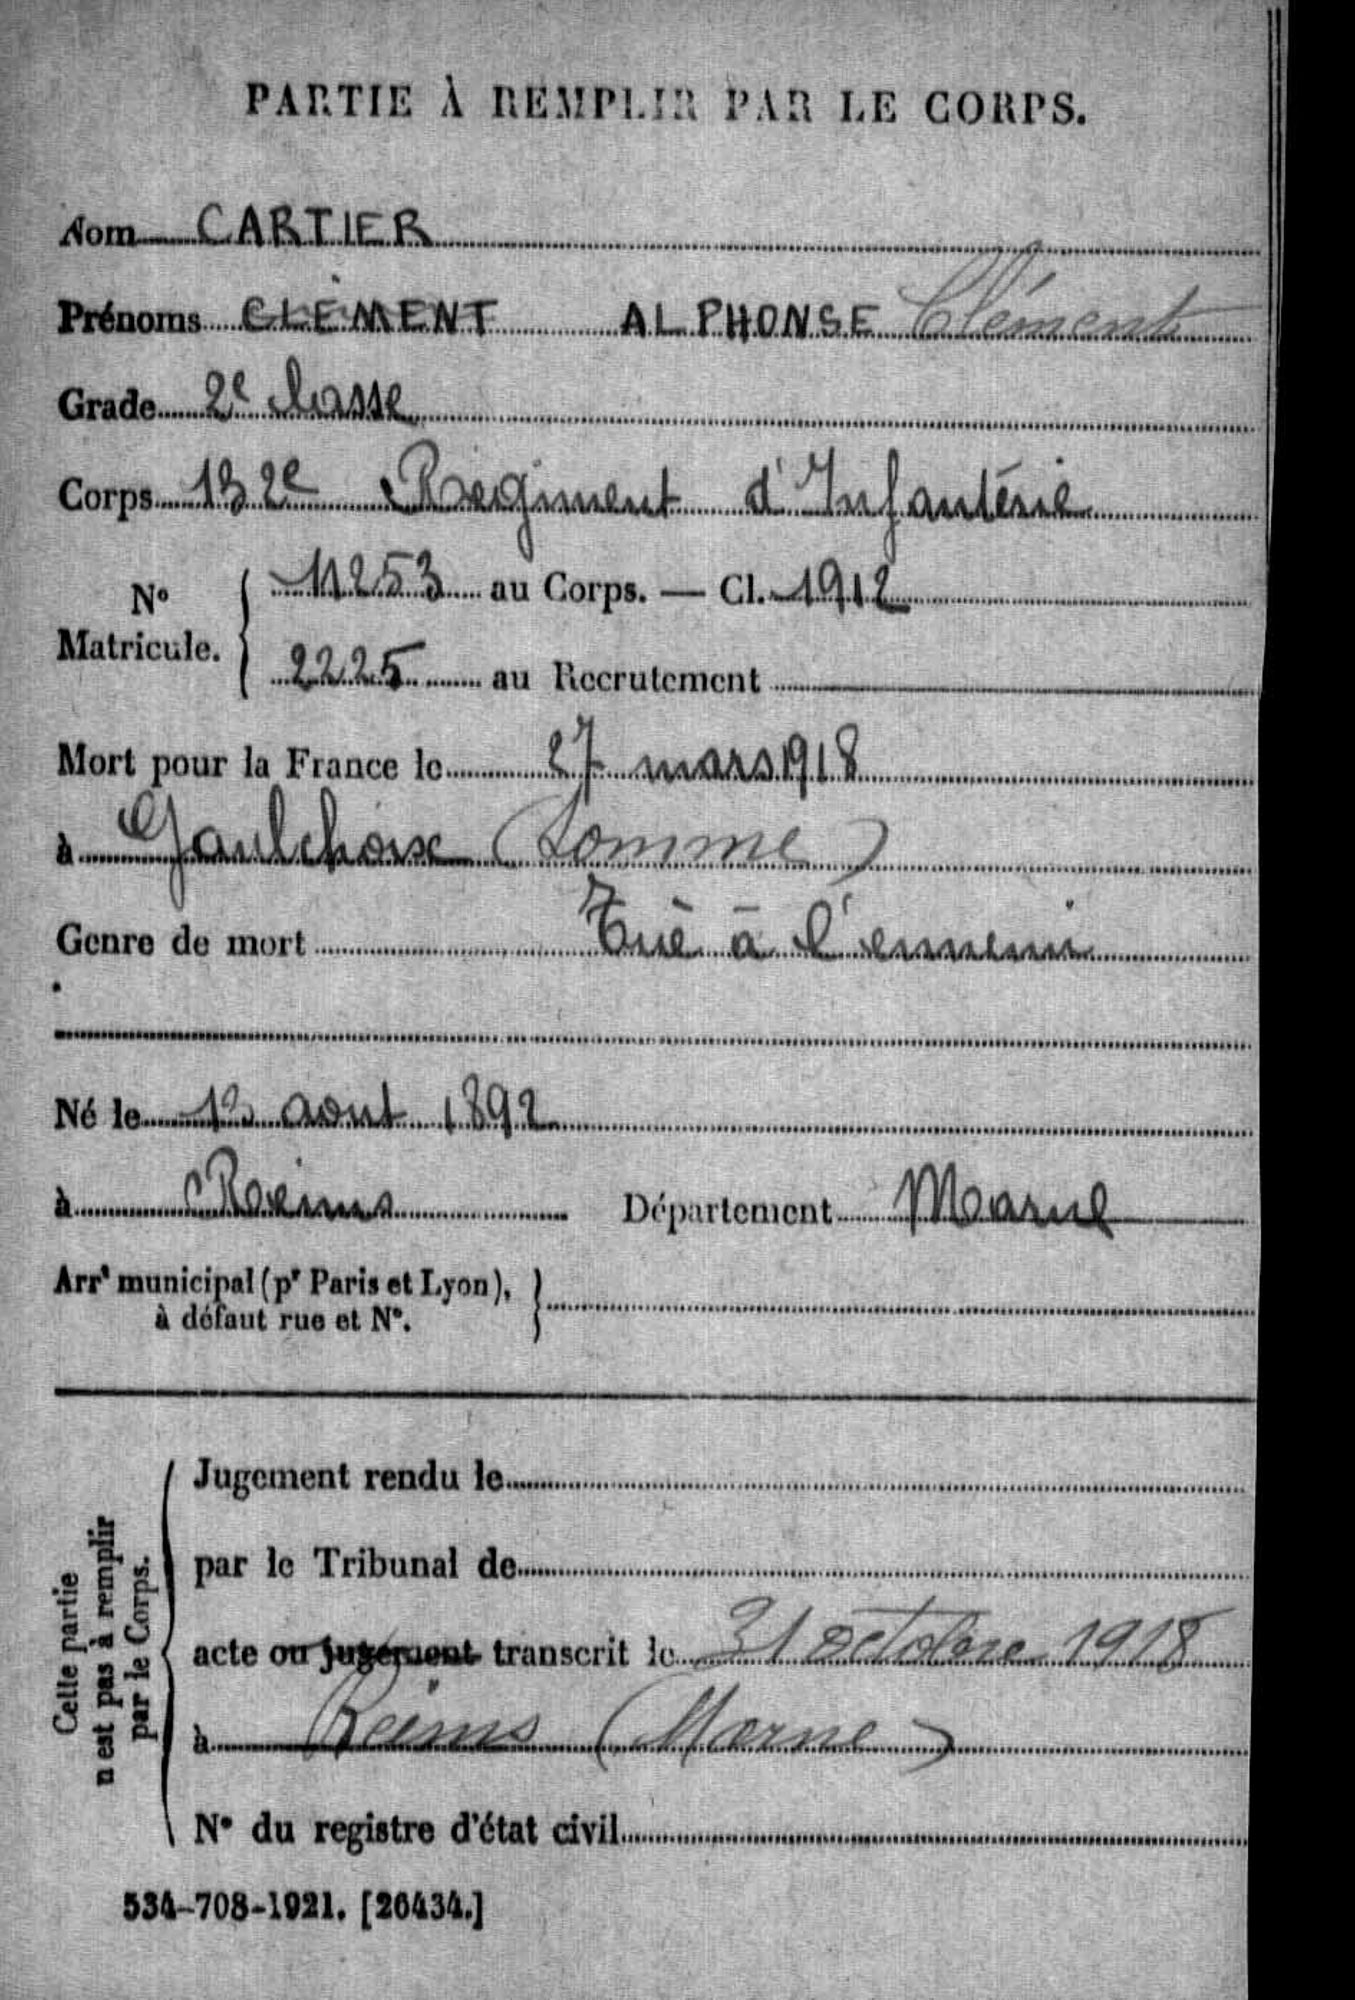 PARTIE À REMPLIR PAR LE CORPS.
Nom CARTIER
Prénoms CLÉMENT ALPHONSE Clément
Grade 2e classe
Corps 132e Régiment d'Infantérie
No Matricule. { 11253 au Corps. — Cl. 1912
2225 au Recrutement
Mort pour la France le 27 mars 1918
à Gaulchoise (Somme)
Genre de mort Tué à l'ennemi
Né le août 1892
à Reims Département Marne
Arrt municipal (pr Paris et Lyon),
à défaut rue et No.
Cette partie
n'est pas à remplir
par le Corps.
Jugement rendu le
par le Tribunal de
acte ou jugement transcrit le 31 octobre 1918
à Reims (Marne)
No du registre d'état civil
534-708-1921. [26434.]